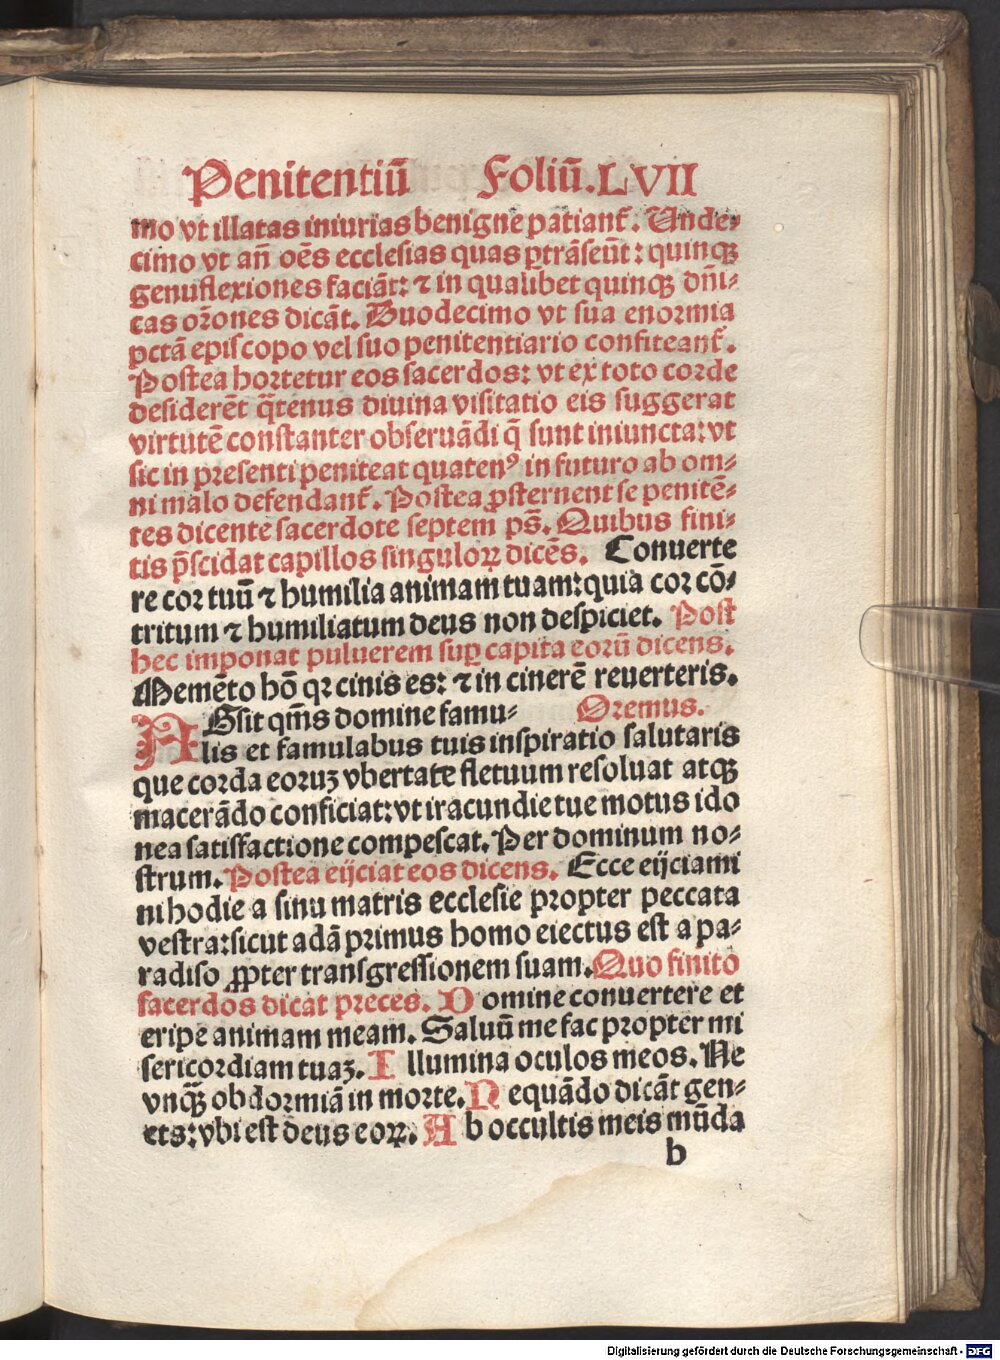 Penitentiū Foliū.LVII
mo vt illatas iniurias benigne patiant᷑. Vnde⸗
cimo vt añ oēs ecclesias quas ꝑtrāseūt: quinqꝫ
genuflexiones faciāt: ⁊ in qualibet quinqꝫ dñi⸗
cas orōnes dicāt. Duodecimo vt sua enormia
pctā episcopo vel suo penitentiario confiteant᷑.
Postea hortetur eos sacerdos: vt ex toto corde
desiderēt q̄tenus diuina visitatio eis suggerat
virtutē constanter obseruādi q̄ sunt iniuncta: vt
sic in presenti peniteat quatenꝰ in futuro ab om⸗
ni malo defendant᷑. Postea ꝓsternent se penitē⸗
tes dicente sacerdote septem ps̄. Quibus fini⸗
tis p̄scidat capillos singuloꝝ dicēs. Conuerte
re cor tuū ⁊ humilia animam tuam: quia cor cō⸗
tritum ⁊ humiliatum deus non despiciet. Post
hec imponat puluerem suꝑ capita eorū dicens.
Memēto hō qꝛ cinis es: ⁊ in cinerē reuerteris.
ADsit qm̄s domine famu⸗ Oremus.
lis et famulabus tuis inspiratio salutaris
que corda eoruꝫ vbertate fletuum resoluat atqꝫ
macerādo conficiat: vt iracundie tue motus ido
nea satisfactione compescat. Per dominum no⸗
strum. Postea eijciat eos dicens. Ecce eijciami
ni hodie a sinu matris ecclesie propter peccata
vestra: sicut adā primus homo eiectus est a pa⸗
radiso ꝓpter transgressionem suam. Quo finito
sacerdos dicat preces. Domine conuertere et
eripe animam meam. Saluū me fac propter mi
sericordiam tuaꝫ. Illumina oculos meos. Ne
vnqꝫ̄ obdormiā in morte. Nequādo dicāt gen⸗
ets: vbi est deus eoꝝ. Ab occultis meis mūda
b
Digitalisierung gefördert durch die Deutsche Forschungsgemeinschaft - DFG